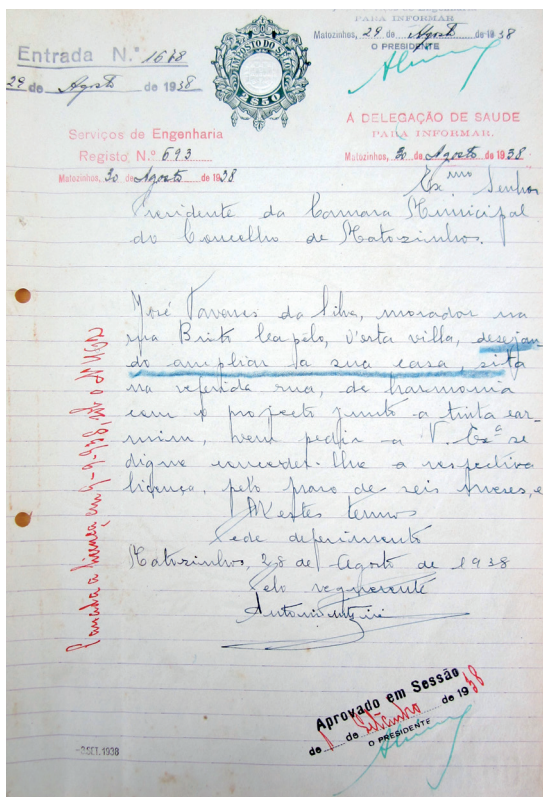 PARA INFORMAR
Matozinhos, 29 de Agosto de 1938
O PRESIDENTE
Entrada N.º 1618
29 de Agosto de 1938
IMPOSTO DO SELO
2$50
Á DELEGAÇÃO DE SAUDE
PARA INFORMAR.
Matozinhos, 30 de Agosto de 1938.
Serviços de Engenharia
Registo N.º 693
Matozinhos, 30 de Agosto de 1938
Exmo Senhor
Presidente da Camara Municipal
do Concelho de Matozinhos.
José Tavares da Silva, morador na
rua Brito Capelo, d'esta villa, desejan-
do ampliar a sua casa, sita
na referida rua, de harmonia
com o projecto junto a tinta car-
mim, vem pedir a V. Exª se
digne conceder-lhe a respectiva
licença, pelo prazo de seis meses, e
N'estes termos
Pede deferimento
Matozinhos, 28 de Agosto de 1938
Pelo requerente
Antonio
a licença em 9-9-938, sob o Nº
Aprovado em Sessão
de 1 de Setembro de 1938
O PRESIDENTE
-2 SET. 1938